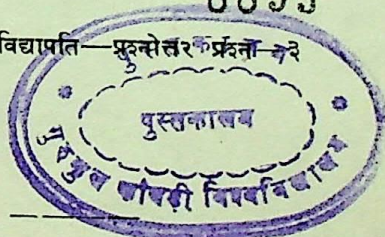 विद्यापति—प्रश्नोत्तर प्रश्न—३
पुस्तकालय
गुरुकुल कांगड़ी विश्वविद्यालय